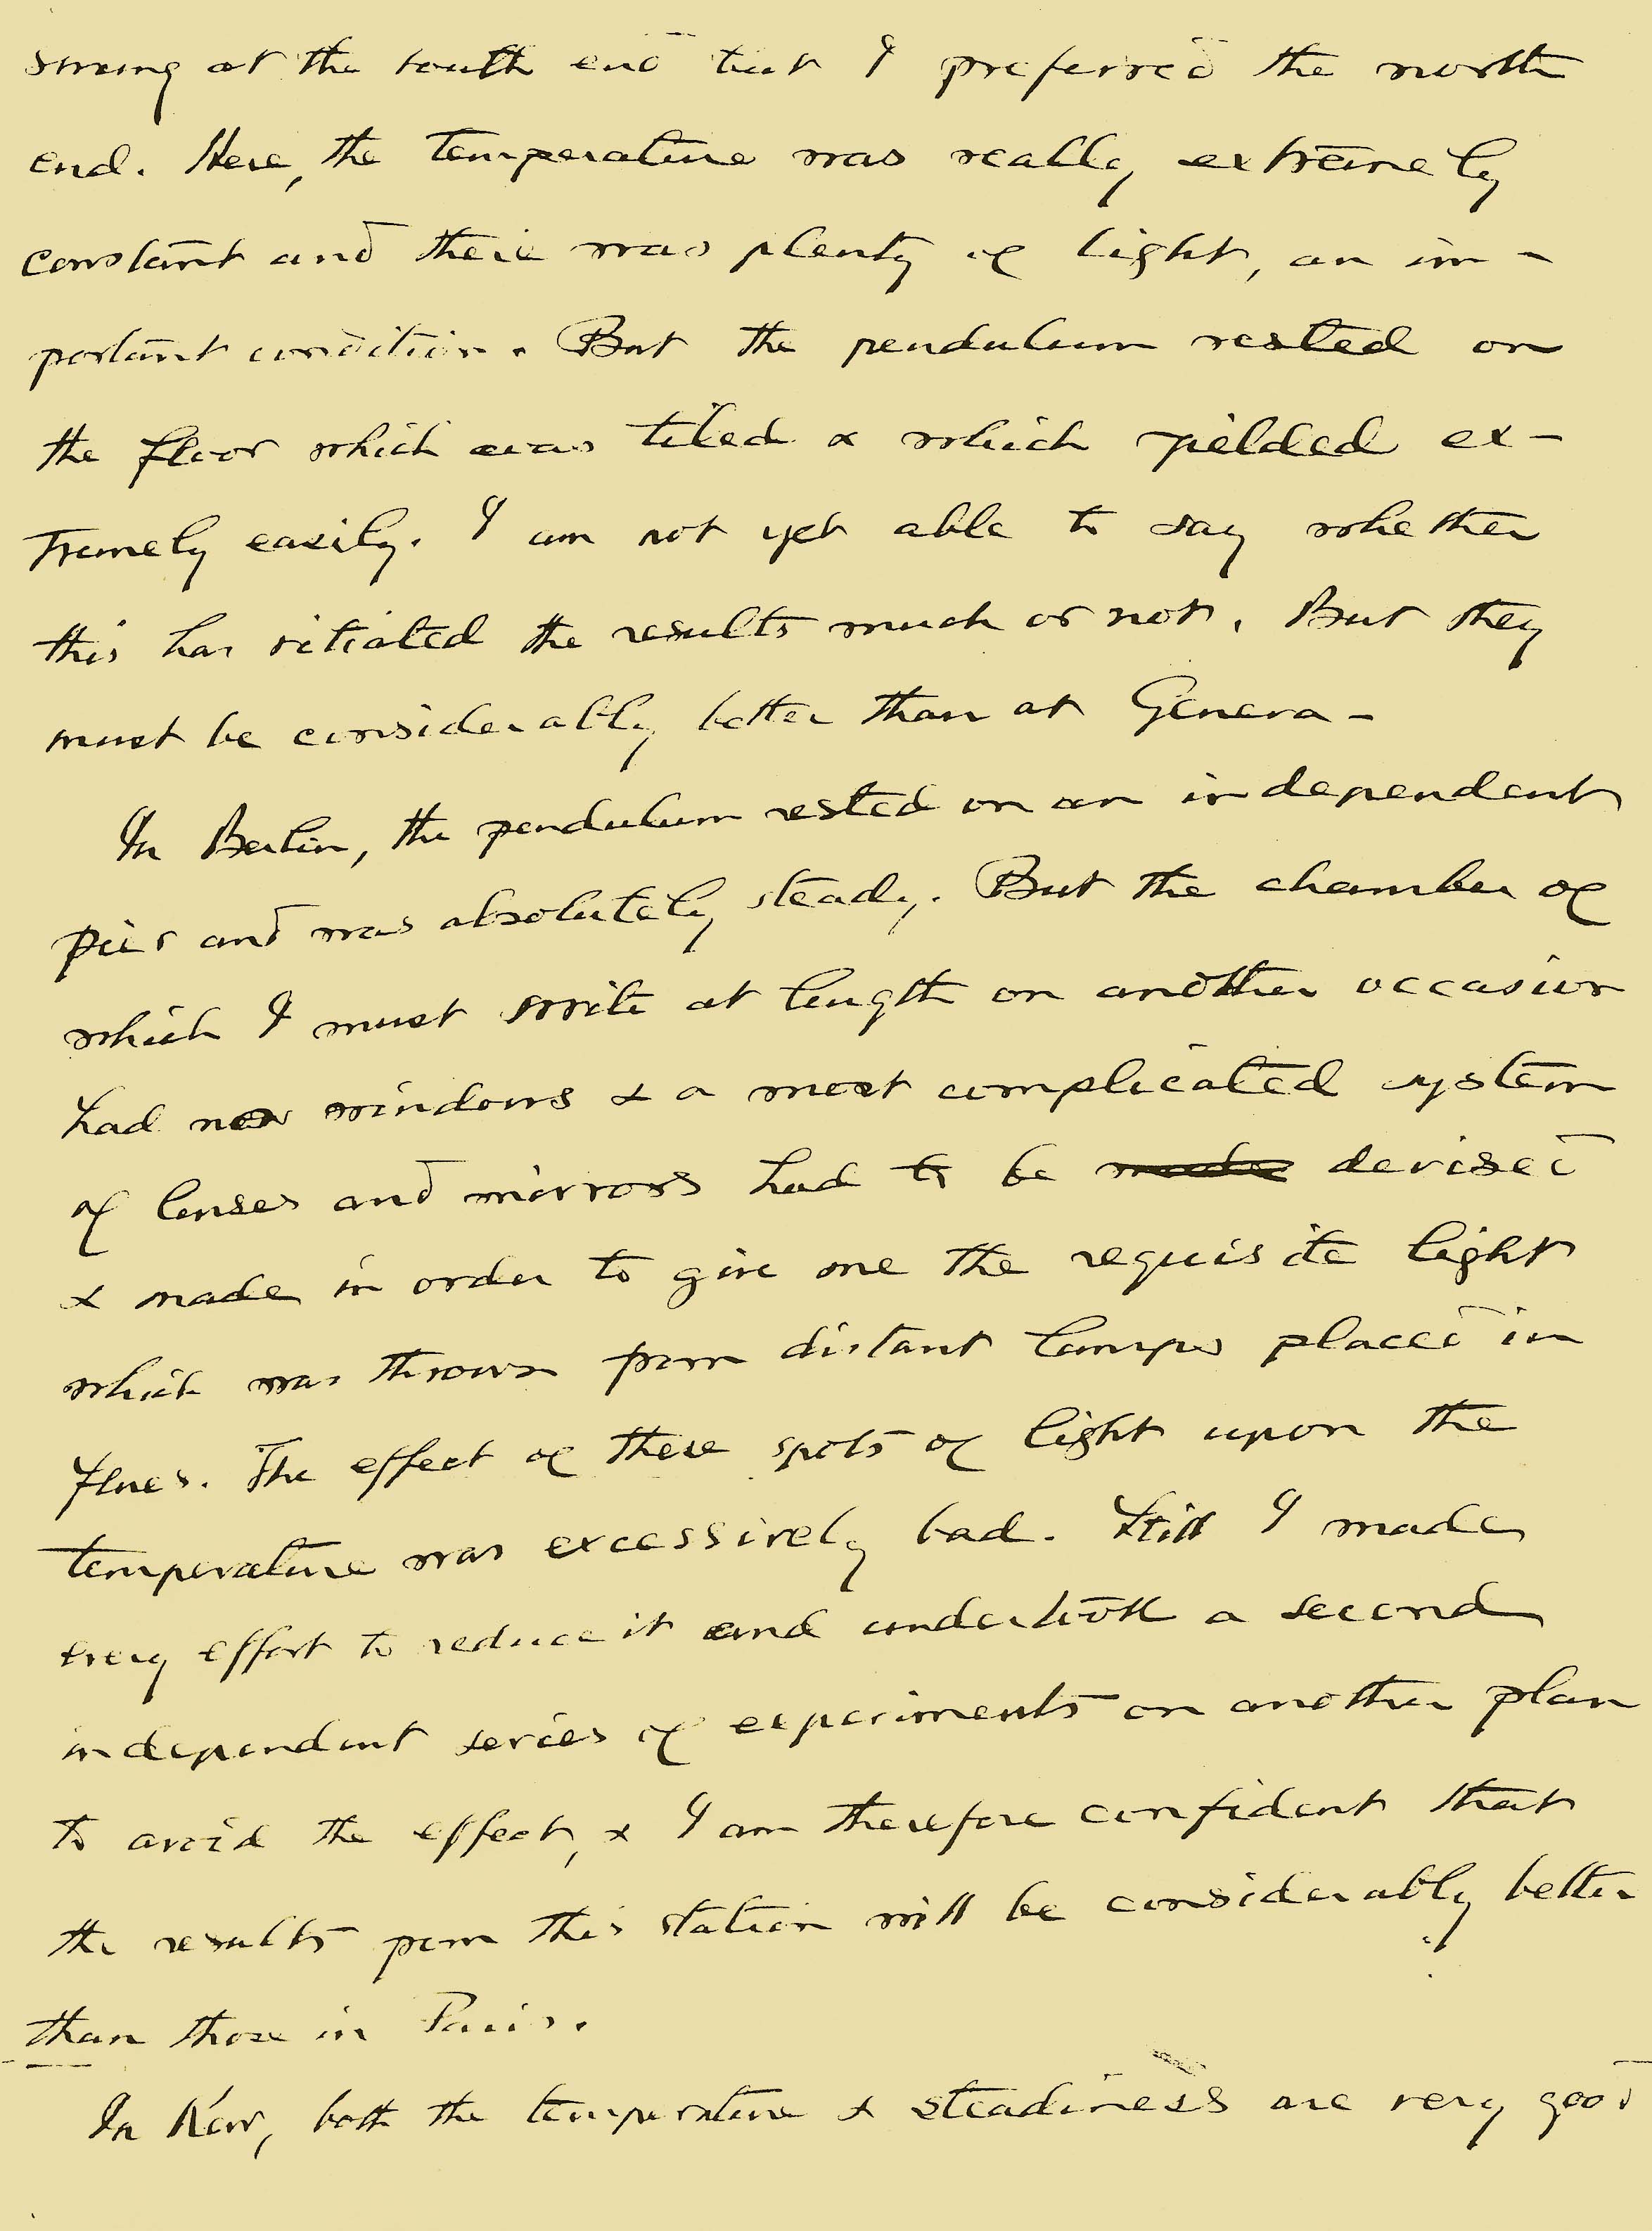 strong at the south end that I preferred the north
end. Here, the temperature was really extremely
constant and there was plenty of light, an im-
portant condition. But the pendulum rested on
the floor which was tiled & which yielded ex-
tremely easily. I am not yet able to say whether
this has vitiated the results much or not. But they
must be considerably better than at Geneva-
In Berlin, the pendulum rested on an independent
pier and was absolutely steady. But the chamber of
which I must write at length on another occasion
had no windows & a most complicated system
of lenses and mirrors had to be made devised
& made in order to give one the requisite light
which was thrown from distant lamps placed in
flues. The effect of these spots of light upon the
temperature was excessively bad. Still I made
every effort to reduce it and undertook a second
independent series of experiments on another plan
to avoid the effect, & I am therefore confident that
the results from this station will be considerably better
than those in Paris.
In Kew, both the temperature & steadiness are very good